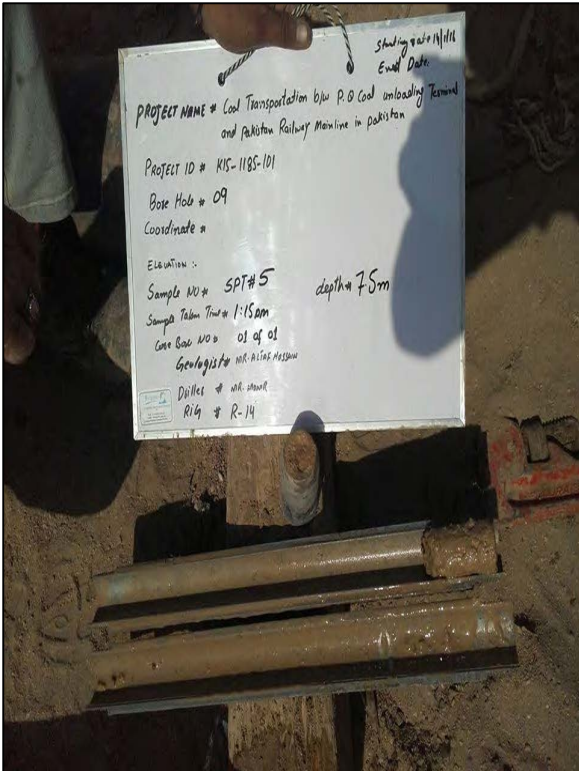 Starting date
End Date:
PROJECT NAME # Coal Transportation b/w P.Q Coal unloading Terminal
and Pakistan Railway Mainline in pakistan
PROJECT ID # K15-1185-101
Bore Hole # 09
Coordinate #
ELEVATION :-
Sample NO # SPT # 5 depth # 7.5m
Sample Taken Time # 1:15pm
Core Box NO # 01 of 01
Geologist # MR. HUSSAIN
Driller # MR.
Rig # R-14